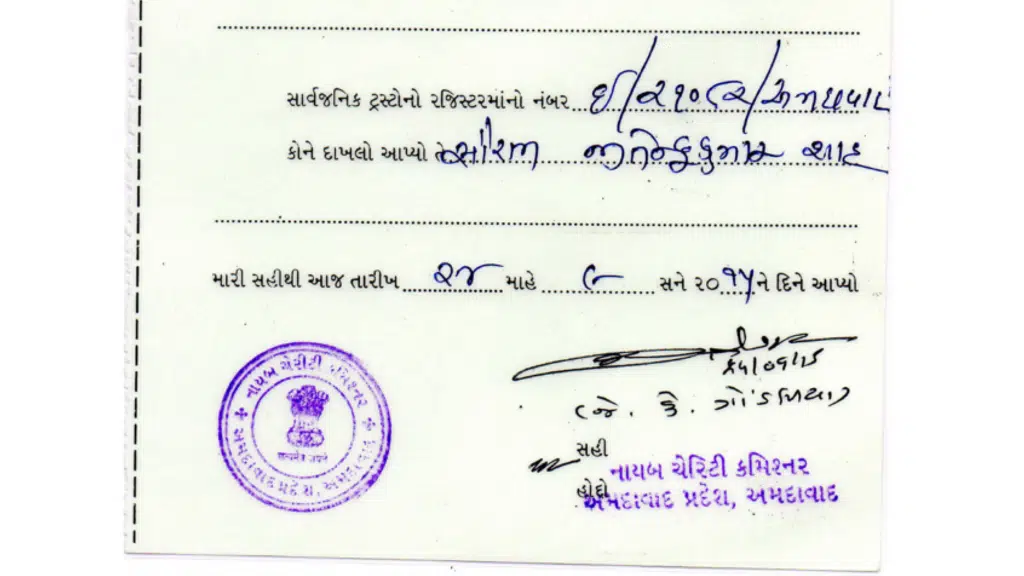 સાર્વજનિક ટ્રસ્ટોનો રજિસ્ટરમાંનો નંબર ઈ/૨૧૦૮૨/અમદાવાદ
કોને દાખલો આપ્યો તે સૌરભ જીતેન્દ્રકુમાર શાહ
મારી સહીથી આજ તારીખ ૨૪ માહે ૯ સને ૨૦૧૫ ને દિને આપ્યો
(જે. કે. ગોંડલિયા)
સહી
નાયબ ચેરિટી કમિશ્નર
હોદ્દો
અમદાવાદ પ્રદેશ, અમદાવાદ
નાયબ ચેરીટી કમિશ્નર
અમદાવાદ પ્રદેશ, અમદાવાદ
सत्यमेव जयते